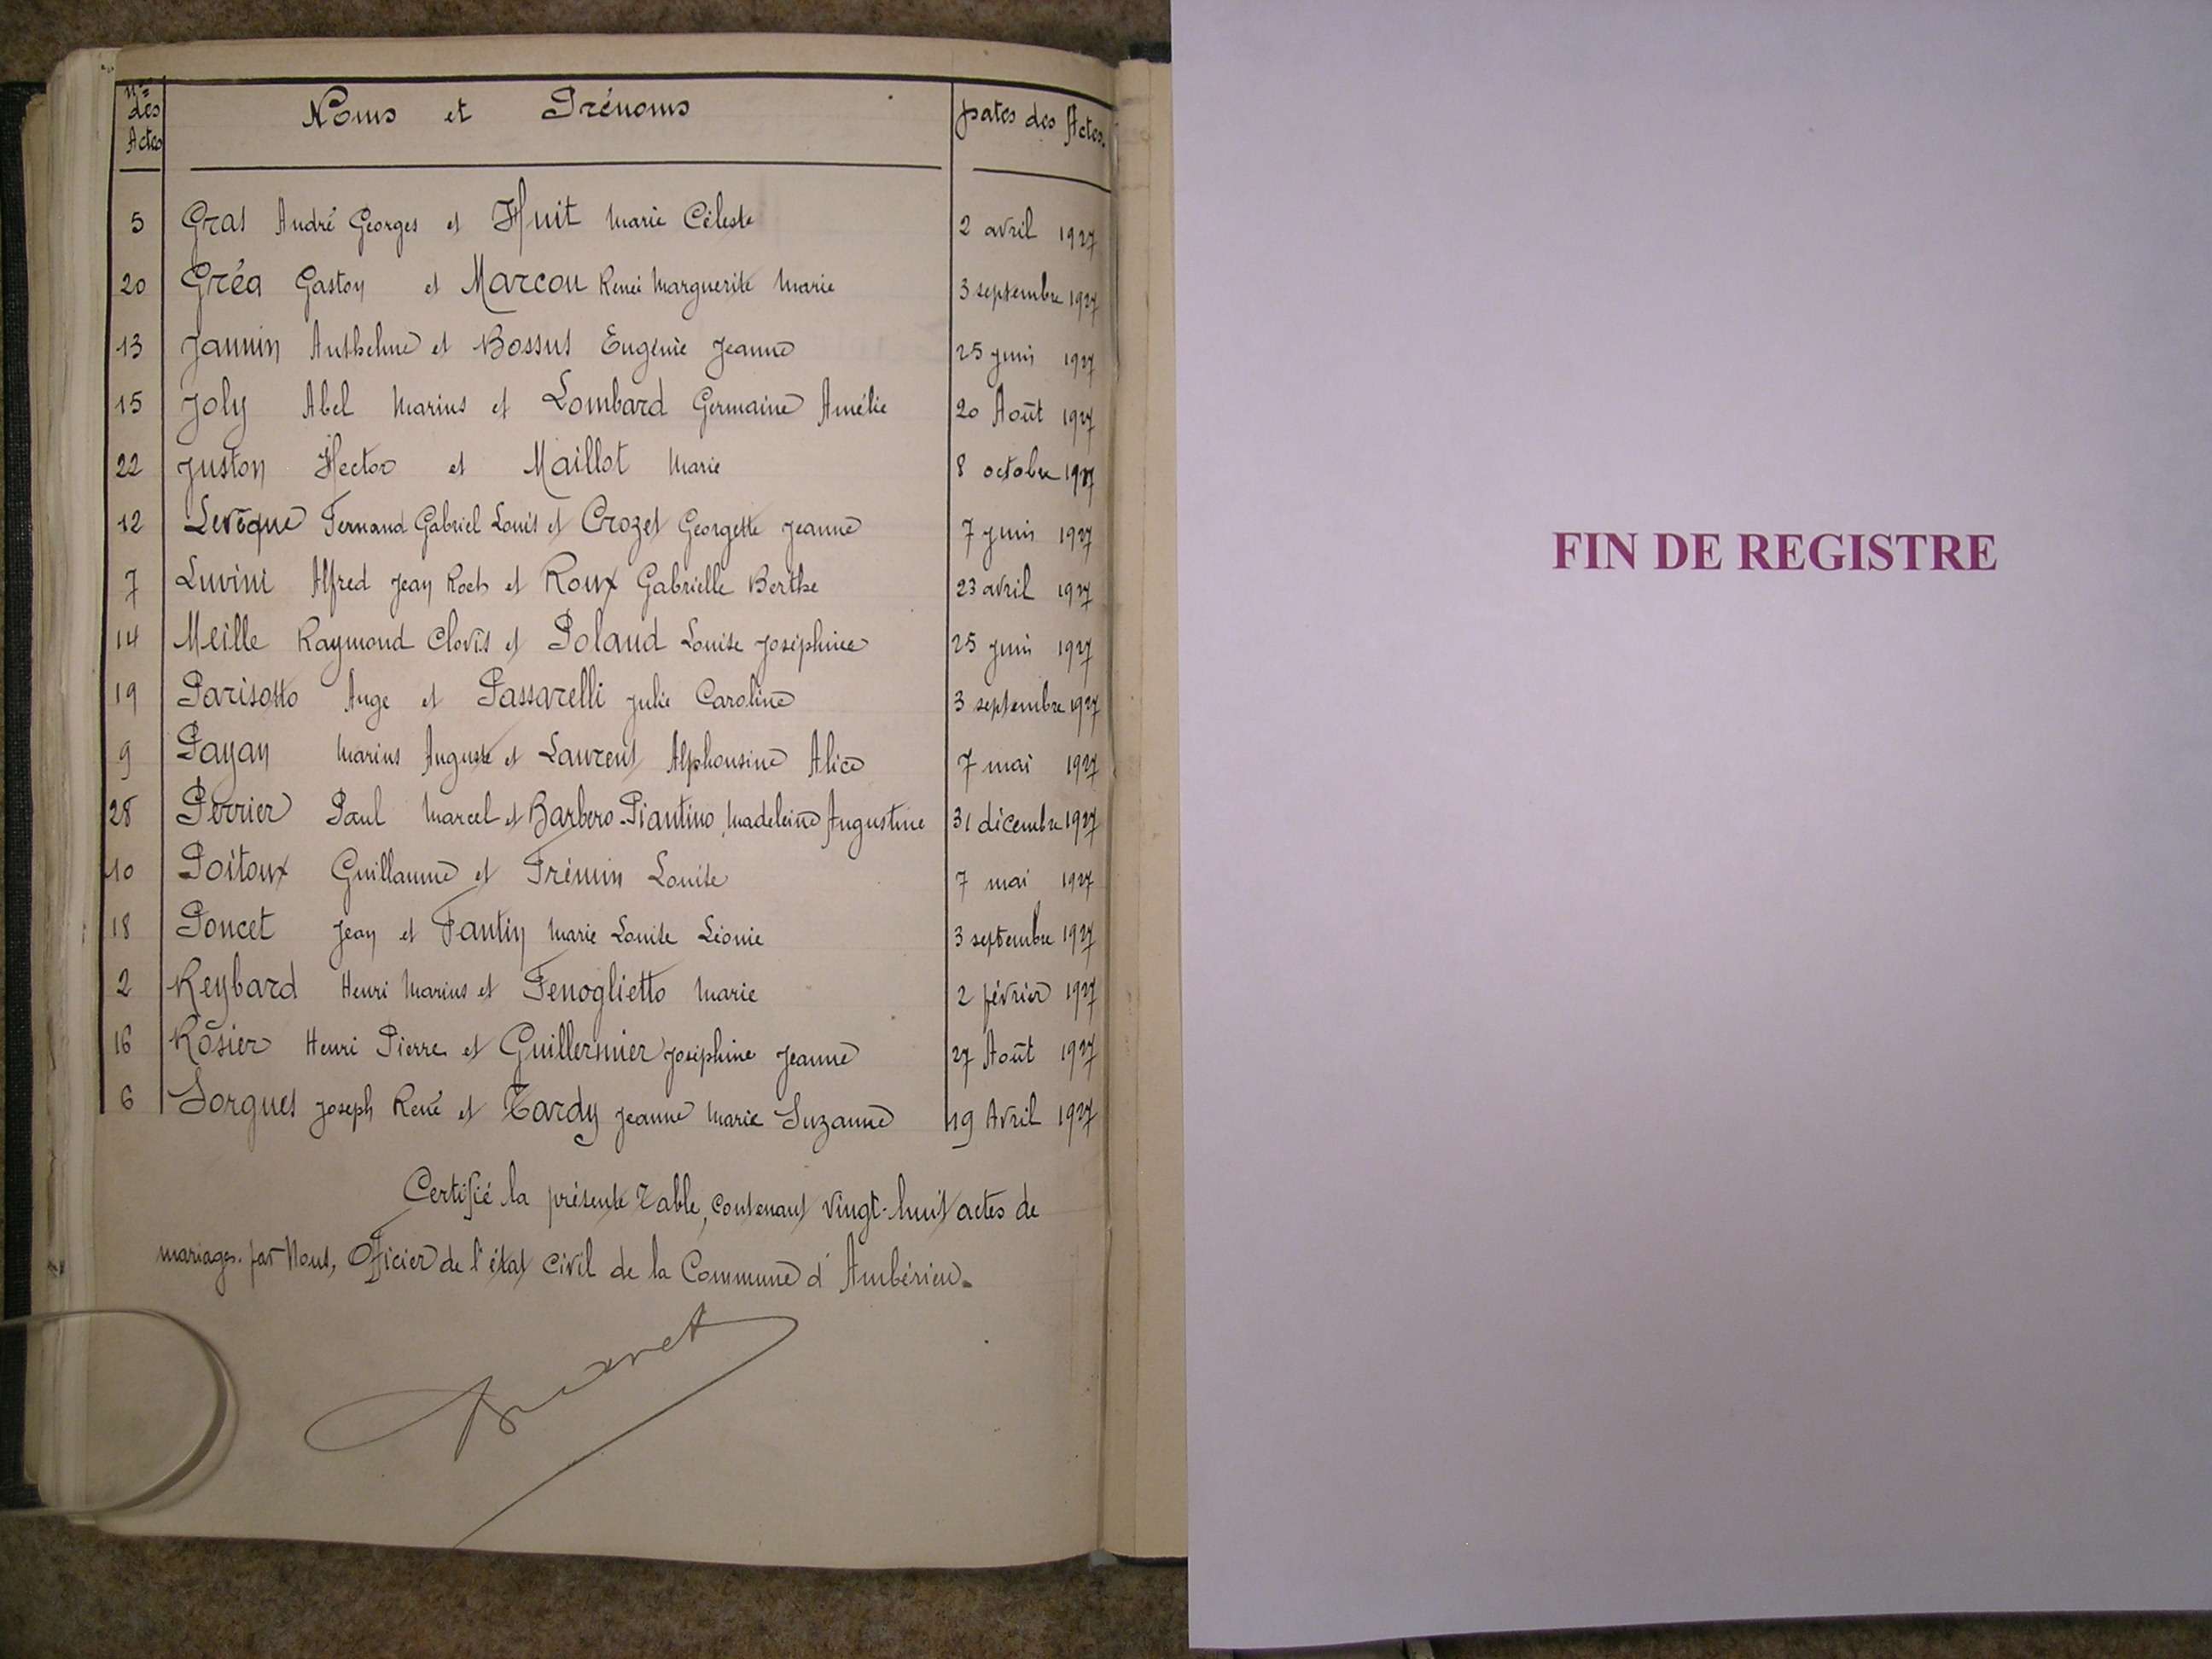 Nos des Actes Noms et Prénoms Dates des Actes.
5 Gras André Georges et Huit Marie Céleste 2 avril 1927
20 Gréa Gaston et Marcou Renée Marguerite Marie 3 septembre 1927
13 Jannin Anthelme et Bossus Eugénie Jeanne 25 juin 1927
15 Joly Abel Marius et Lombard Germaine Amélie 20 Août 1927
22 Juston Hector et Maillot Marie 8 octobre 1927
12 Levêque Fernand Gabriel Louis et Crozet Georgette Jeanne 7 juin 1927
7 Luvini Alfred Jean Roch et Roux Gabrielle Berthe 23 avril 1927
14 Meille Raymond Clovis et Poland Louise Joséphine 25 juin 1927
19 Parisotto Ange et Passarelli Julie Caroline 3 septembre 1927
9 Payan Marius Auguste et Laurent Alphonsine Alice 7 mai 1927
28 Perrier Paul Marcel et Barbero-Piantino, Madeleine Augustine 31 décembre 1927
10 Poitoux Guillaume et Frémin Louise 7 mai 1927
18 Poncet Jean et Fantin Marie Louise Léonie 3 septembre 1927
2 Reybard Henri Marius et Fenoglietto Marie 2 février 1927
16 Rosier Henri Pierre et Guillermier Joséphine Jeanne 27 Août 1927
6 Sorgues Joseph René et Tardy Jeanne Marie Suzanne 19 Avril 1927
Certifié la présente Table, contenant vingt-huit actes de
mariages. par Nous, Officier de l'état civil de la Commune d'Ambérieu.
FIN DE REGISTRE